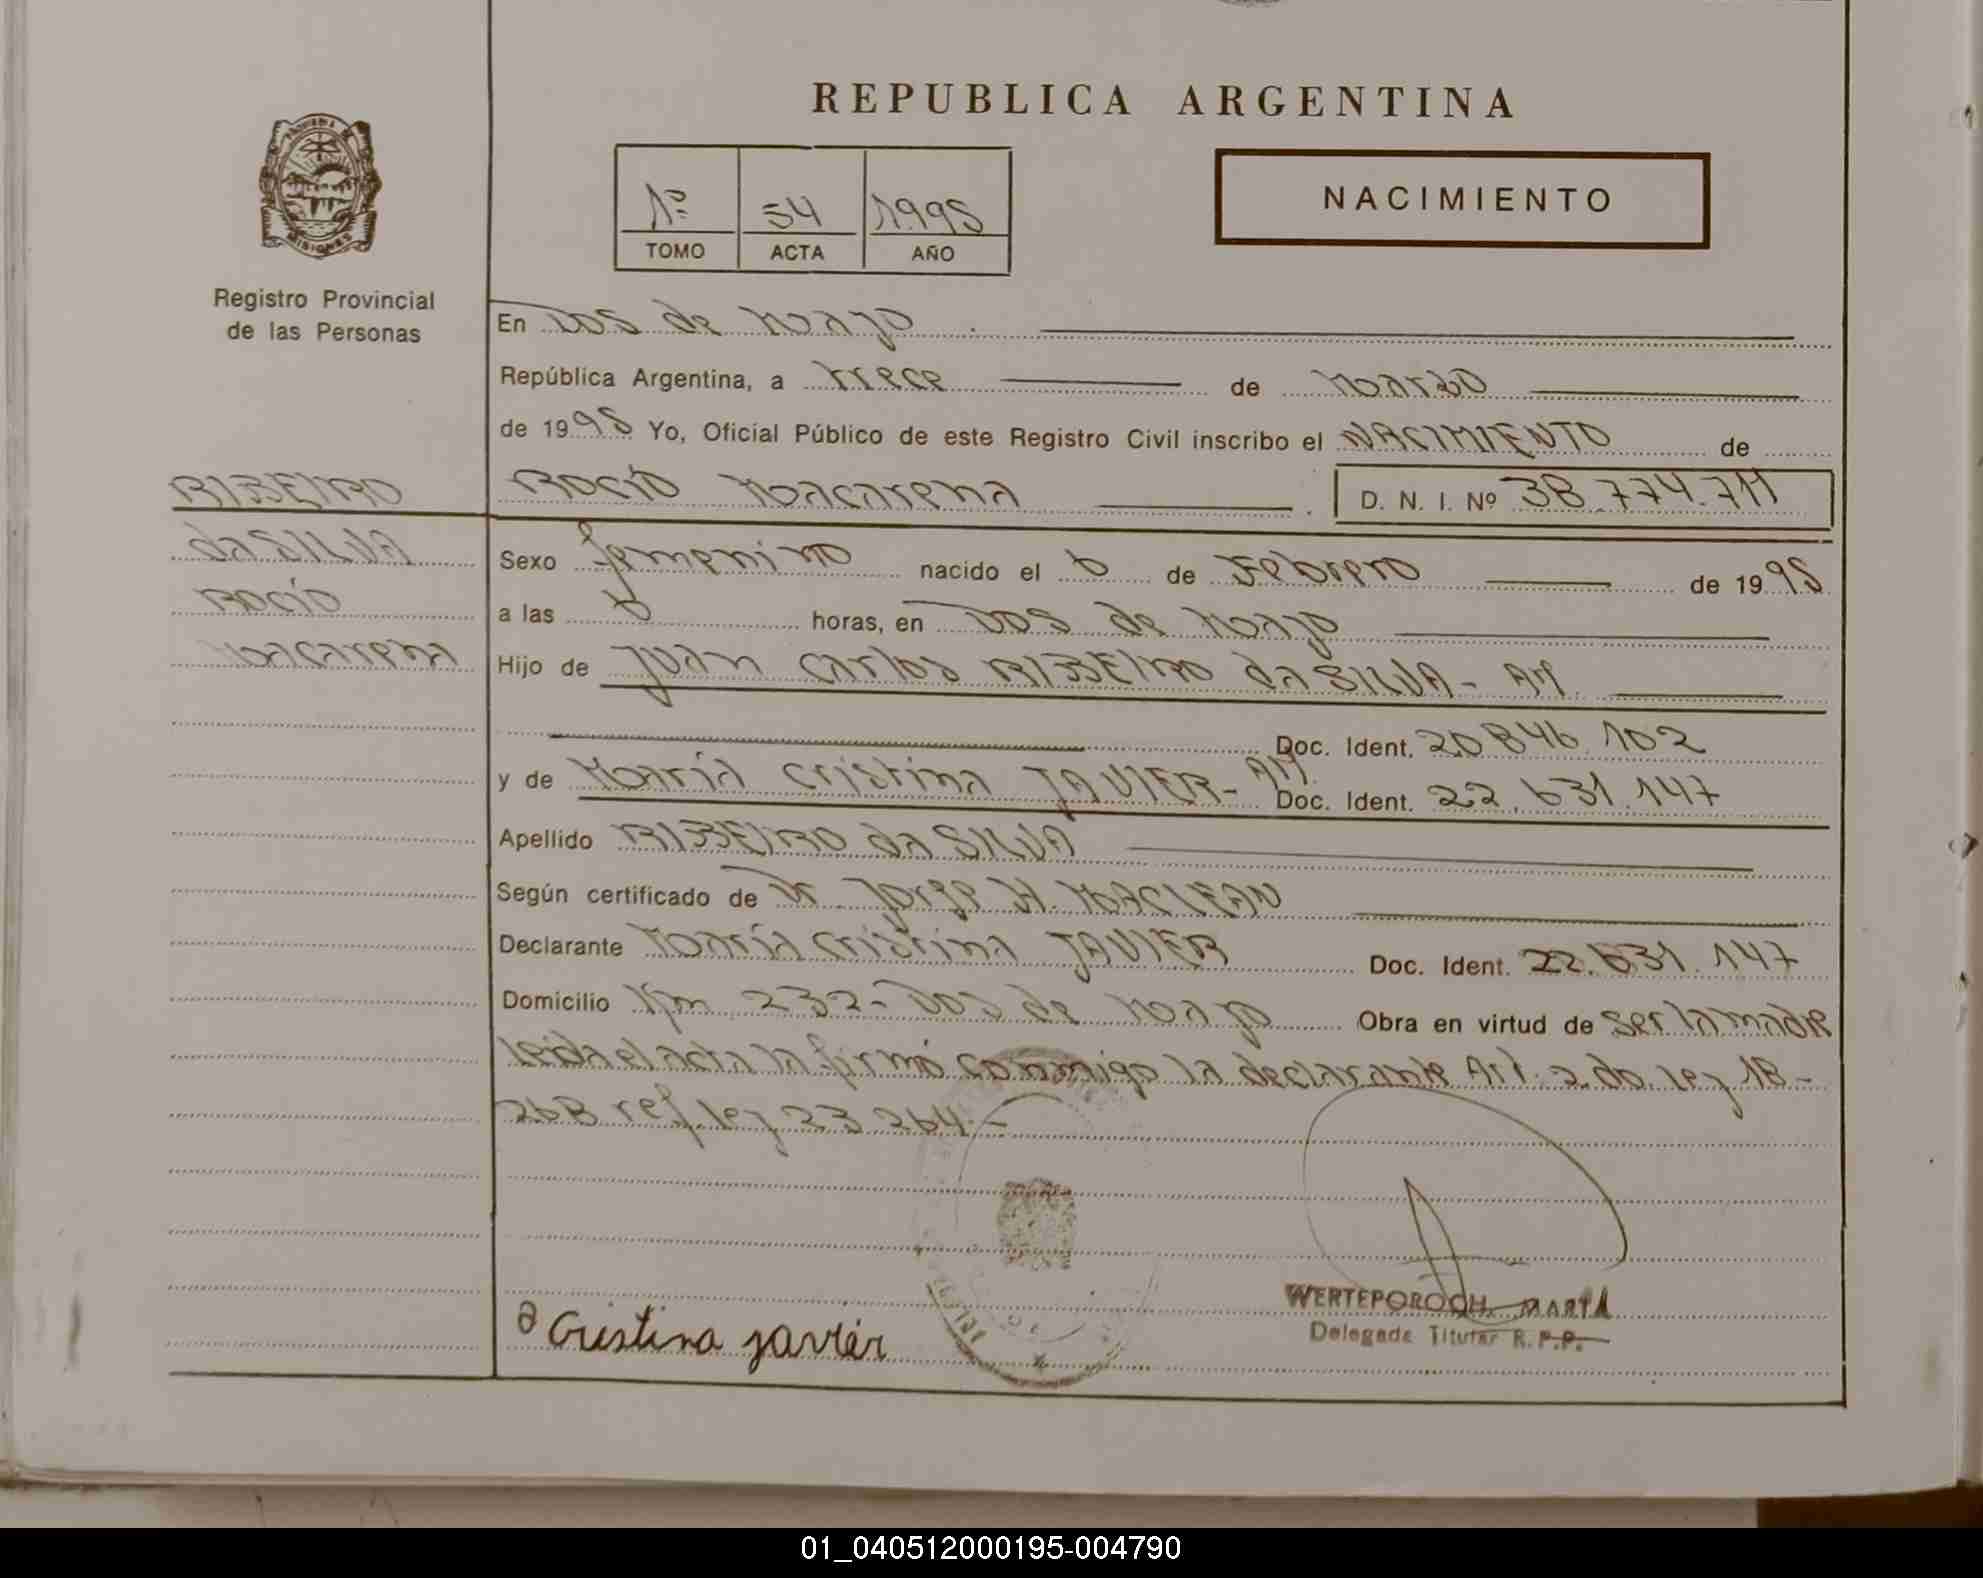 REPUBLICA ARGENTINA
1º 54 1995
TOMO ACTA AÑO
NACIMIENTO
MISIONES
Registro Provincial
de las Personas
En Dos de Mayo
República Argentina, a trece de Marzo
de 1995 Yo, Oficial Público de este Registro Civil inscribo el NACIMIENTO de
RIBEIRO
Rocío Macarena D. N. I. Nº 38.774.711
da SILVA
Rocío
Macarena
Sexo femenino nacido el 6 de Febrero de 1995
a las 6 horas, en Dos de Mayo
Hijo de Juan Carlos RIBEIRO da SILVA - AM.
Doc. Ident. 20.846.102
y de María Cristina JAVIER - AM. Doc. Ident. 22.631.147
Apellido RIBEIRO da SILVA
Según certificado de Dr. Jorge H. MACLEAN
Declarante María Cristina JAVIER Doc. Ident. 22.631.147
Domicilio Km 232 - Dos de Mayo Obra en virtud de ser la madre
Leida el acta la firmó conmigo la declarante Art. 2do. ley 18-
268 ref. ley 23.264.-
Cristina javier
WERTEPOROCH, MARTA
Delegada Titular R.P.P.
01_040512000195-004790